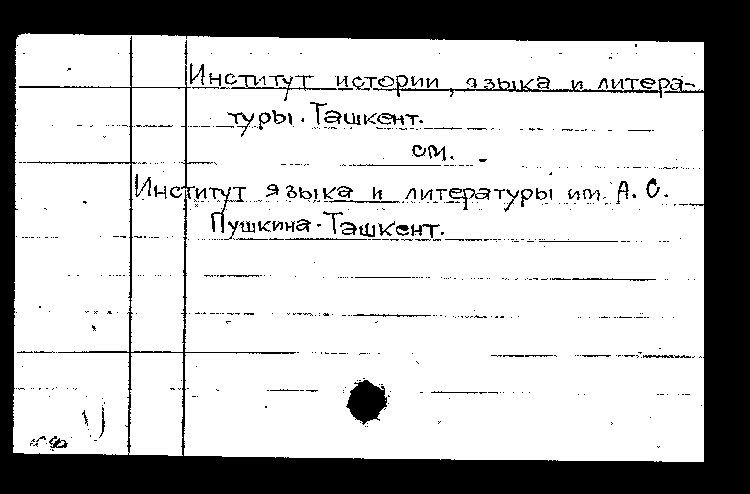 Институт истории, языка и литера-
туры. Ташкент.
см.
Институт языка и литературы им. А. С.
Пушкина. Ташкент.